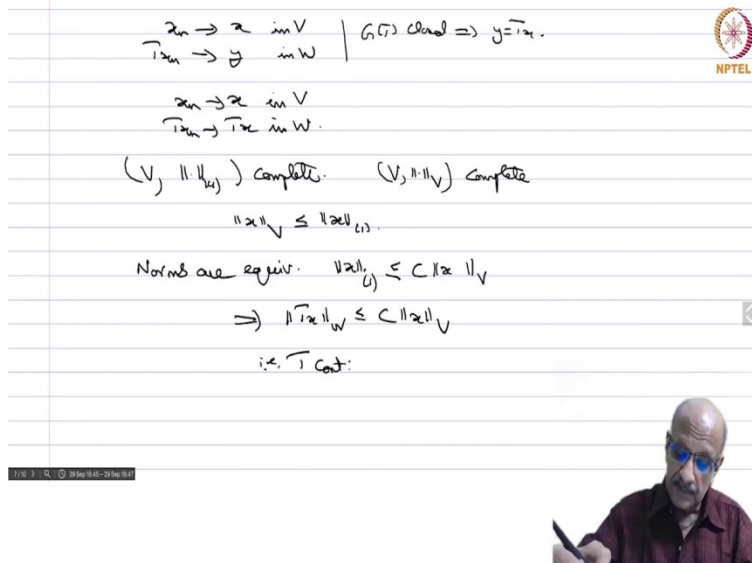 xₙ → x in V | G(T) closed ⇒ y = Tx.
Txₙ → y in W
NPTEL
xₙ → x in V
Txₙ → Tx in W.
(V, ‖·‖₍₁₎) complete. (V, ‖·‖_V) complete
‖x‖_V ≤ ‖x‖₍₁₎.
Norms are equiv. ‖x‖₍₁₎ ≤ C‖x‖_V
⇒ ‖Tx‖_W ≤ C‖x‖_V
i.e. T cont:
7/10 29 Sep 18:45 – 29 Sep 18:47